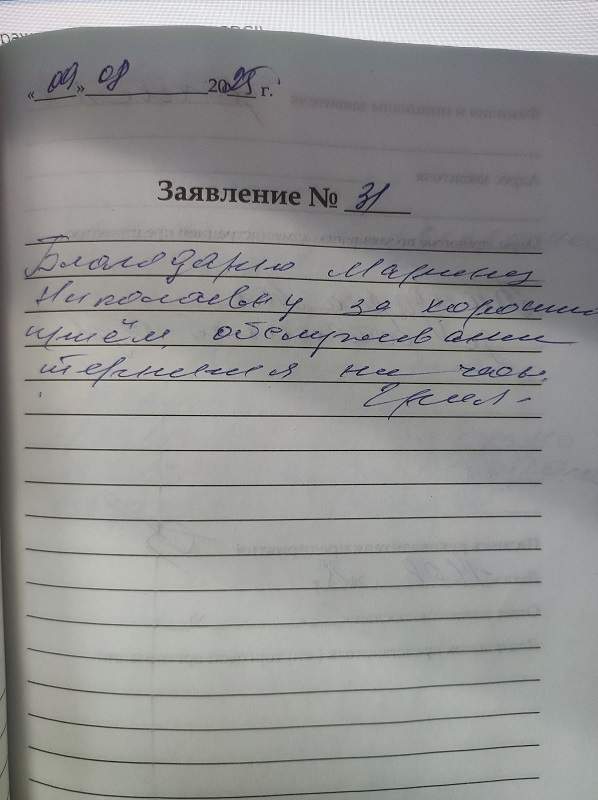 «09» 08 2025 г.
Заявление № 31
Благодарю Марину
Николаевну за хороший
приём, обслуживание
терпения ни часы.